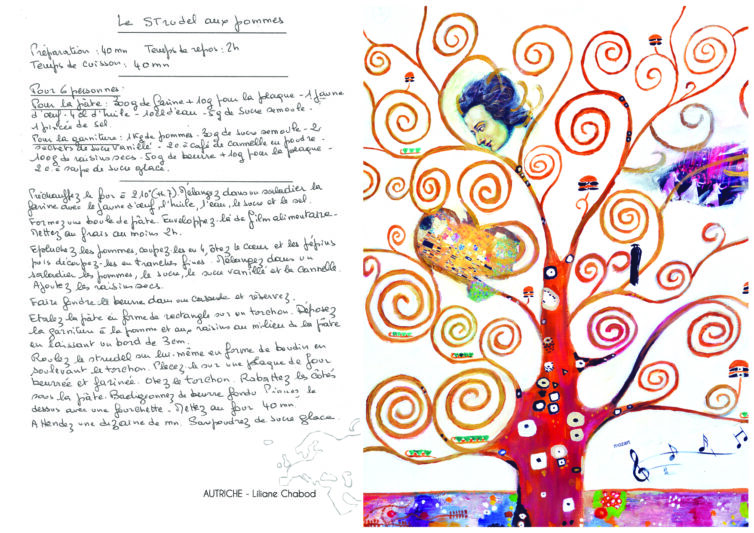 Le Strudel aux pommes
Préparation : 40 mn Temps de repos : 2h
Temps de cuisson : 40 mn
Pour 6 personnes.
Pour la pâte : 200g de farine + 10g pour la plaque - 1 jaune
d'œuf - 4 cl d'huile - 10cl d'eau - 5g de sucre semoule -
1 pincée de sel
Pour la garniture : 1Kg de pommes - 30g de sucre semoule - 2
sachets de sucre vanillé - 2 c. à café de cannelle en poudre -
100g de raisins secs - 50g de beurre + 10g pour la plaque -
2 c. à soupe de sucre glace.
Préchauffez le four à 210° (th 7). Mélangez dans un saladier la
farine avec le jaune d'œuf, l'huile, l'eau, le sucre et le sel.
Formez une boule de pâte. Enveloppez-la de film alimentaire -
Mettez au frais au moins 2h.
Epluchez les pommes, coupez-les en 4, ôtez le cœur et les pépins
puis découpez-les en tranches fines. Mélangez dans un
saladier les pommes, le sucre, le sucre vanillé et la cannelle.
Ajoutez les raisins secs.
Faire fondre le beurre dans une casserole et réservez.
Etalez la pâte en forme de rectangle sur un torchon. Déposez
la garniture à la pomme et aux raisins au milieu de la pâte
en laissant un bord de 3cm.
Roulez le strudel sur lui-même en forme de boudin en
soulevant le torchon. Placez-le sur une plaque de four
beurrée et farinée. Otez le torchon. Rabattez les côtés
sous la pâte. Badigeonnez de beurre fondu. Piquez le
dessus avec une fourchette. Mettez au four 40 mn.
Attendez une dizaine de mn. Saupoudrez de sucre glace.
AUTRICHE - Liliane Chabod
mozart